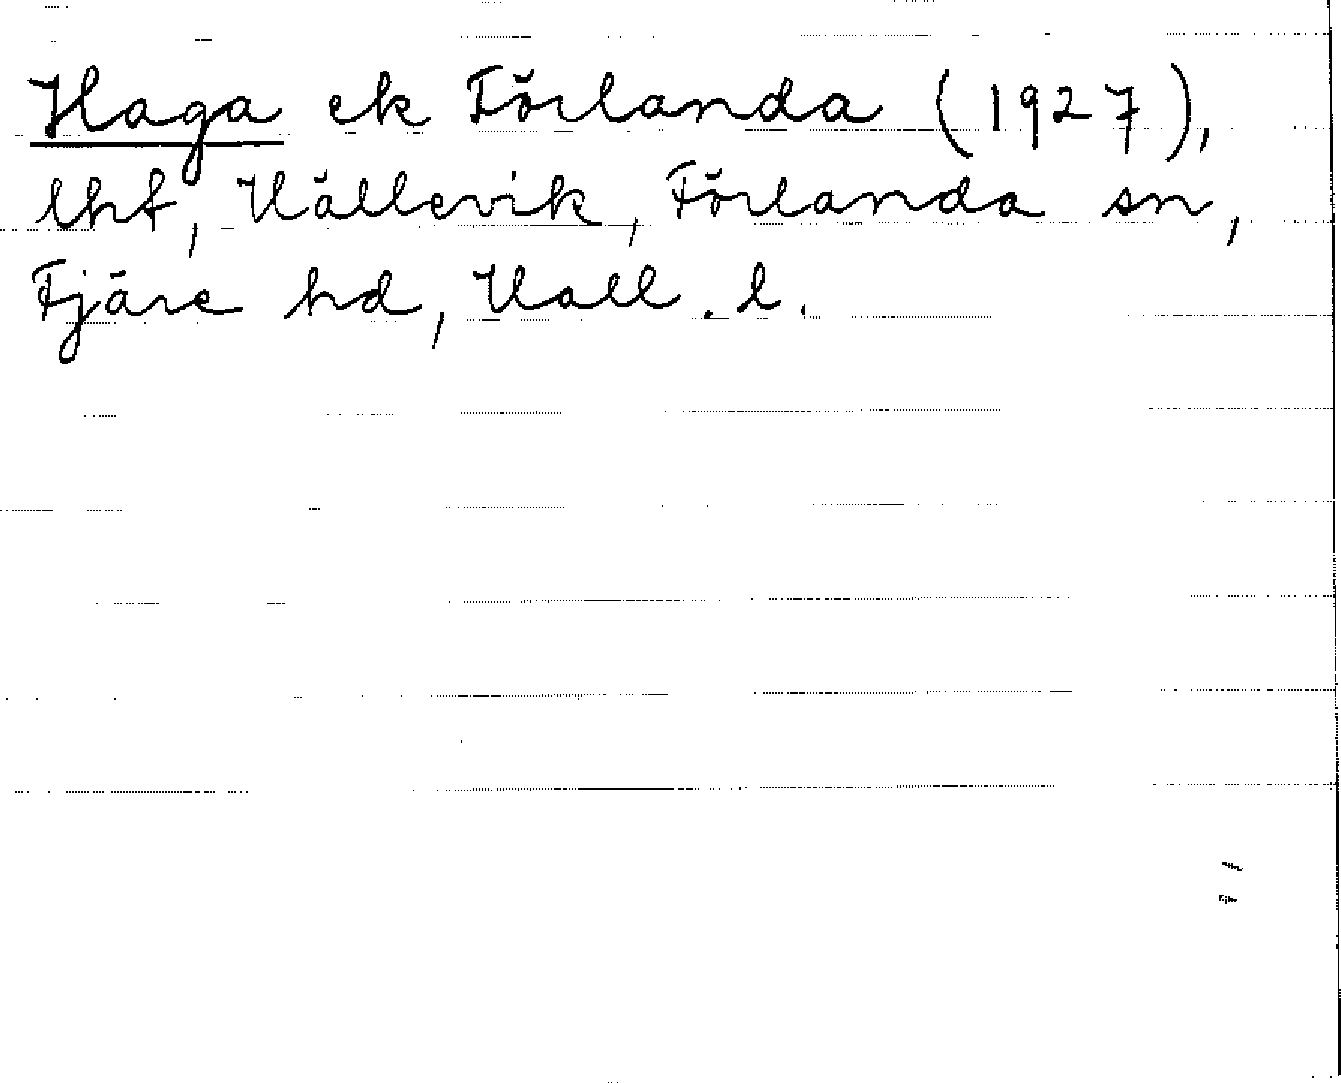 Haga ek Förlanda (1927),
lht, Hällevik, Förlanda sn,
Fjäre hd, Hall. l.